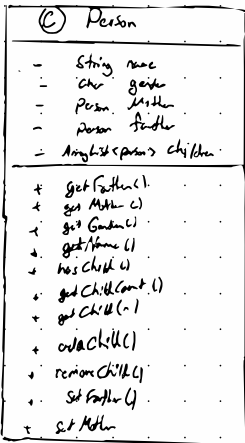 © Person
- String name
- char gender
- Person Mother
- Person father
- ArrayList<person> children
+ getFather()
+ get Mother ()
+ get Gender()
+ getName()
+ has Child ()
+ get Child Count ()
+ get Child (~)
+ add Child()
+ remove Child()
+ Set Father()
+ Set Mother